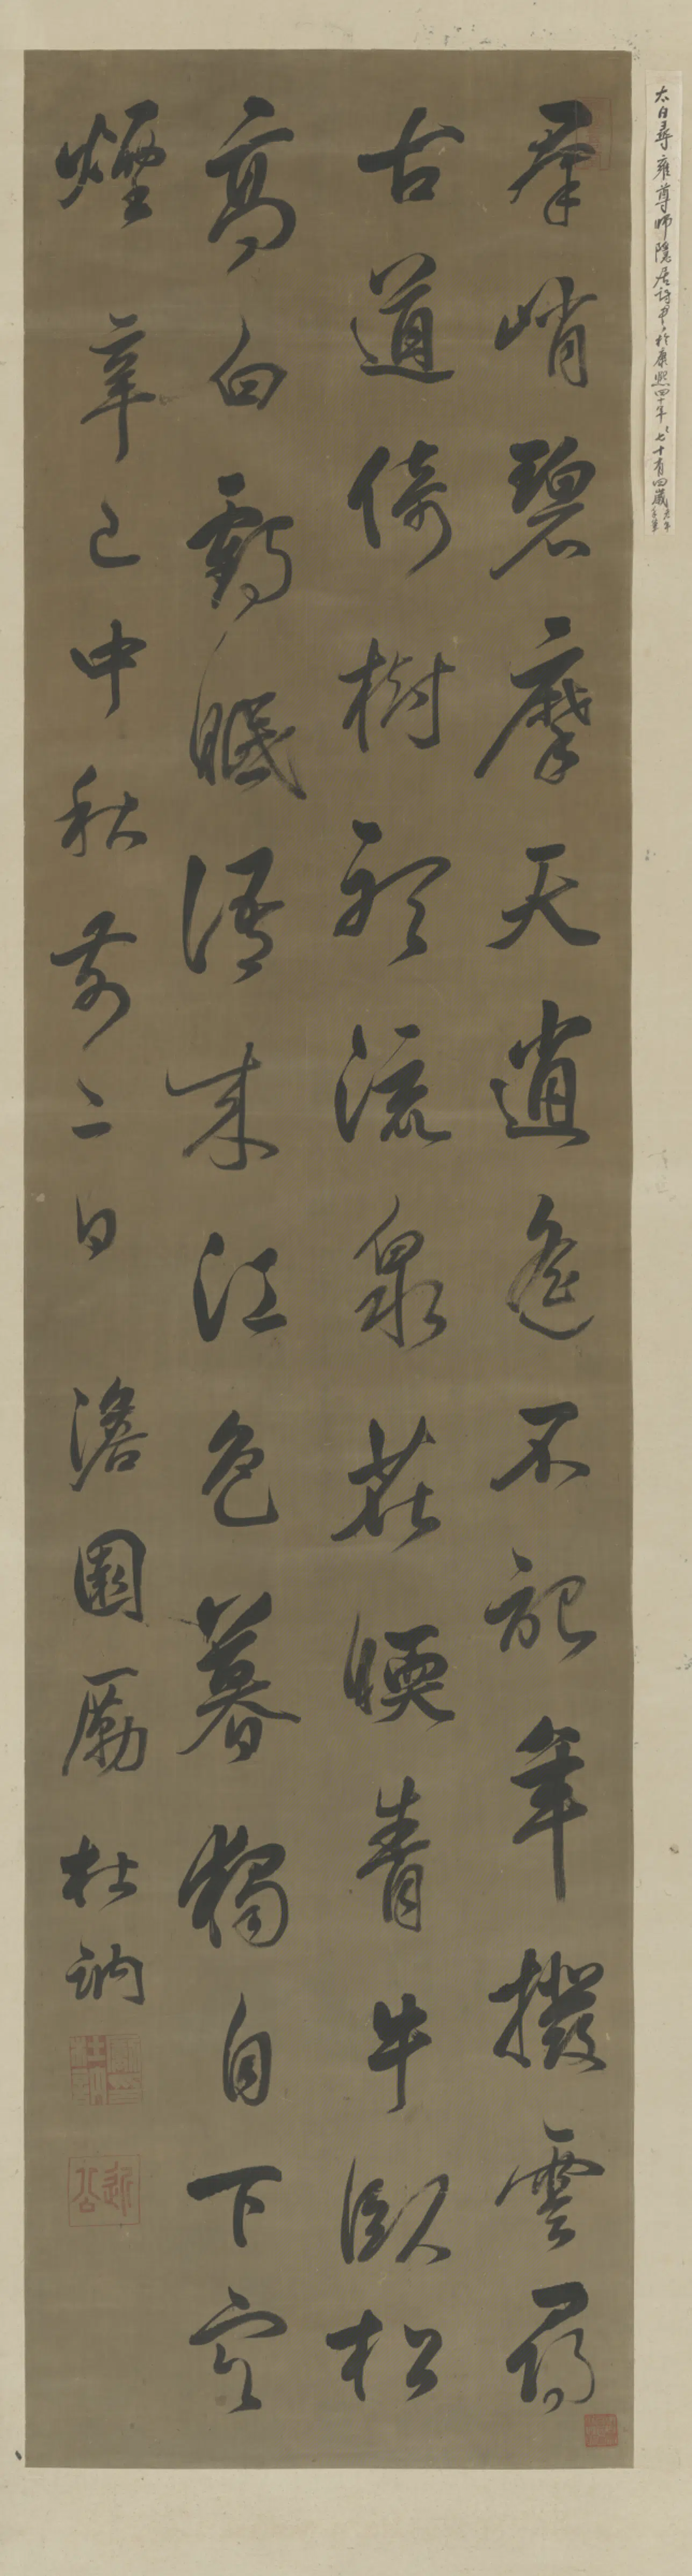 太白尋雍尊師隱居詩書於康熙四十年七十有四歲
羣峭碧摩天逍遙不記年撥雲尋
古道倚樹聽流泉花暖青牛臥松
高白鶴眠語來江色暮獨自下寒
煙 辛巳中秋前二日 澹園勵杜訥